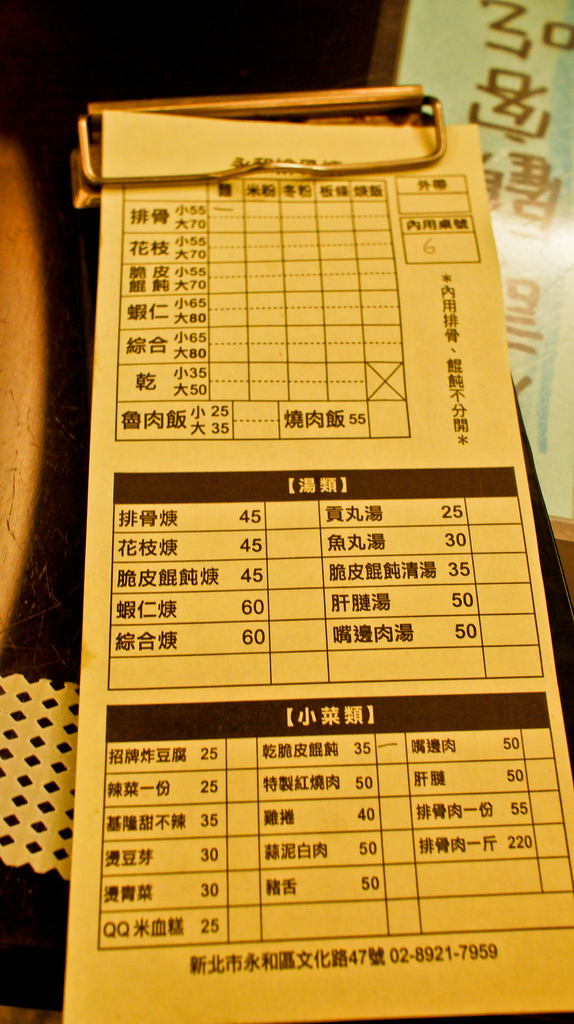 永和排骨焿
麵 米粉 冬粉 板條 焿飯
外帶
內用桌號
6
排骨 小55 大70
花枝 小55 大70
脆皮餛飩 小55 大70
蝦仁 小65 大80
綜合 小65 大80
乾 小35 大50
魯肉飯 小 25 大 35 燒肉飯 55
*內用排骨、餛飩不分開*
【湯類】
排骨焿 45 貢丸湯 25
花枝焿 45 魚丸湯 30
脆皮餛飩焿 45 脆皮餛飩清湯 35
蝦仁焿 60 肝腱湯 50
綜合焿 60 嘴邊肉湯 50
【小菜類】
招牌炸豆腐 25 乾脆皮餛飩 35 一 嘴邊肉 50
辣菜一份 25 特製紅燒肉 50 肝腱 50
基隆甜不辣 35 雞捲 40 排骨肉一份 55
燙豆芽 30 蒜泥白肉 50 排骨肉一斤 220
燙青菜 30 豬舌 50
QQ 米血糕 25
新北市永和區文化路47號 02-8921-7959